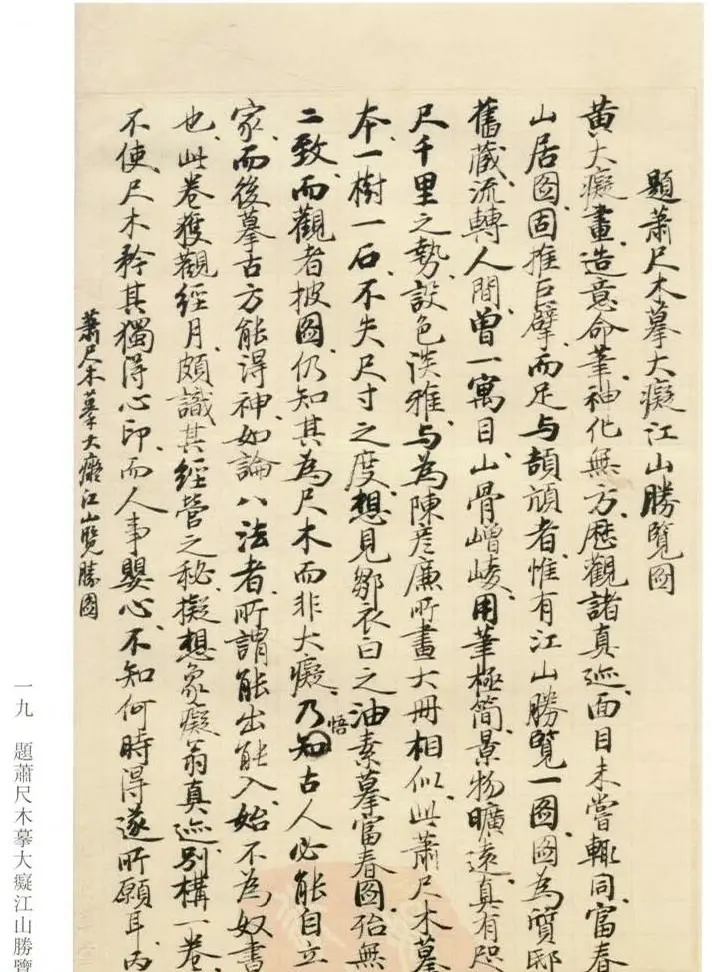 題蕭尺木摹大癡江山勝覽圖
黃大癡畫造意命筆神化無方歷觀諸真迹面目未嘗輒同富春
山居圖固推巨擘而足与頡頏者惟有江山勝覽一圖圖為質邸
舊藏流轉人間曾一寓目山骨嶒崚用筆極簡景物曠遠真有咫
尺千里之勢設色淡雅与為陳彥廉所畫大冊相似此蕭尺木摹
本一樹一石不失尺寸之度想見鄒衣白之油素摹富春圖殆無
二致而觀者披圖仍知其為尺木而非大癡乃知悟古人必能自立
家而後摹古方能得神如論八法者所謂能出能入始不為奴書
也此卷獲觀經月頗識其經營之秘擬想象癡翁真迹別構一卷
不使尺木矜其獨得心印而人事嬰心不知何時得遂所願耳丙
蕭尺木摹大癡江山覽勝圖
一九 題蕭尺木摹大癡江山勝覽